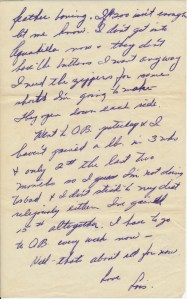 feather boning. If 200 isn't enough
let me know. I don't get into
now & they don't
the buttons I want anyway
I need the zippers for some
shorts I'm going to make
They go down each side.
Went to O.B. yesterday & I
haven't gained a lb. in 3 wks
& only 2# the last two
months so I guess I'm not doing
too bad & I don't stick to my diet
religiously either. I've gained
5# altogether. I have to go
to O.B. every week now —
Well that's about all for now
Love
Lois.